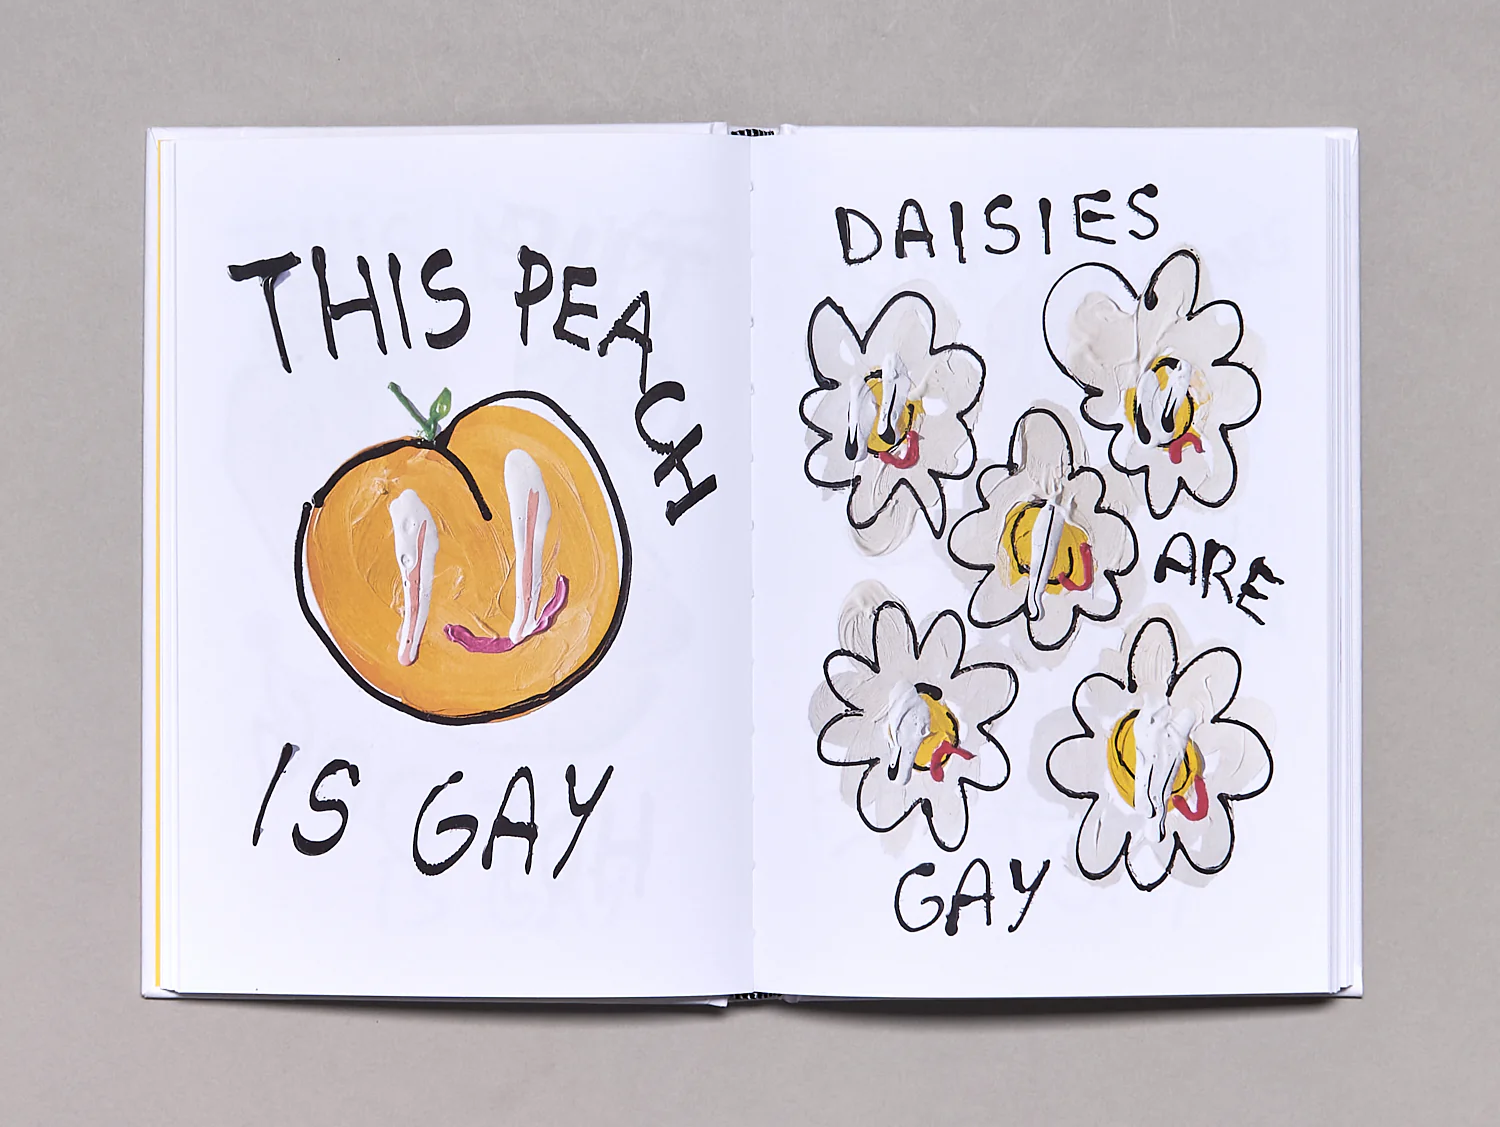 THIS PEACH
IS GAY
DAISIES
ARE
GAY